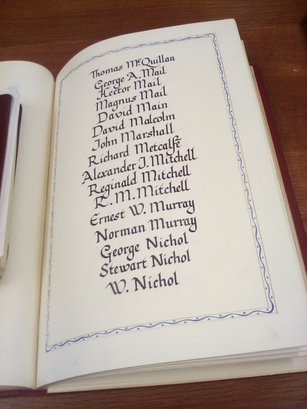 Thomas McQuillan
George A. Mail
Hector Mail
Magnus Mail
David Main
David Malcolm
John Marshall
Richard Metcalfe
Alexander J. Mitchell
Reginald Mitchell
R. M. Mitchell
Ernest W. Murray
Norman Murray
George Nichol
Stewart Nichol
W. Nichol